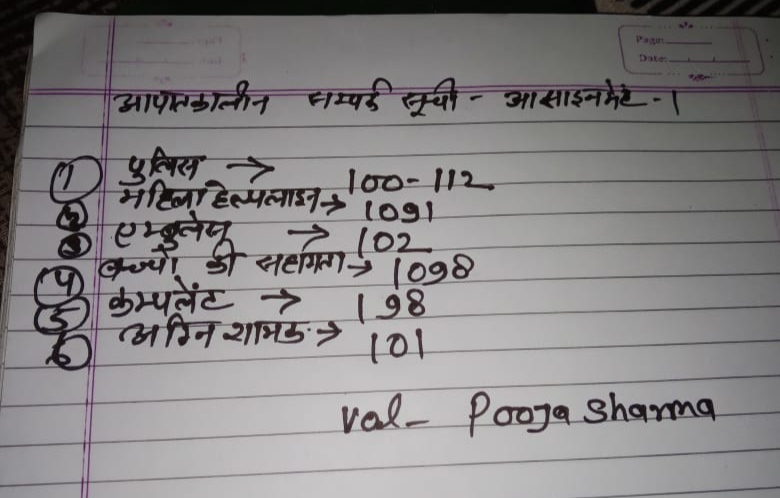 Page:
Date:
आपातकालीन सम्पर्क सूची - आसाइनमेंट - 1
1 पुलिस → 100-112
2 महिला हेल्पलाइन → 1091
3 एम्बुलेन्स → 102
4 बच्चों की सहायता → 1098
5 कम्पलेंट → 198
6 अग्नि शामक → 101
Val- Pooja Sharma